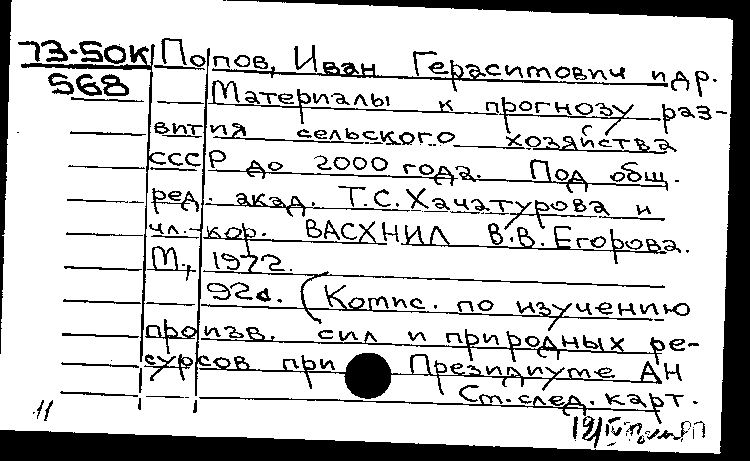 73-50К Попов, Иван Герасимович и др.
568 Материалы к прогнозу раз-
вития сельского хозяйства
СССР до 2000 года. Под общ.
ред. акад. Т.С.Хачатурова и
чл.-кор. ВАСХНИЛ В.В.Егорова.
М., 1972.
92с. (Комис. по изучению
произв. сил и природных ре-
сурсов при Президиуме АН
Ст. след. карт.
11